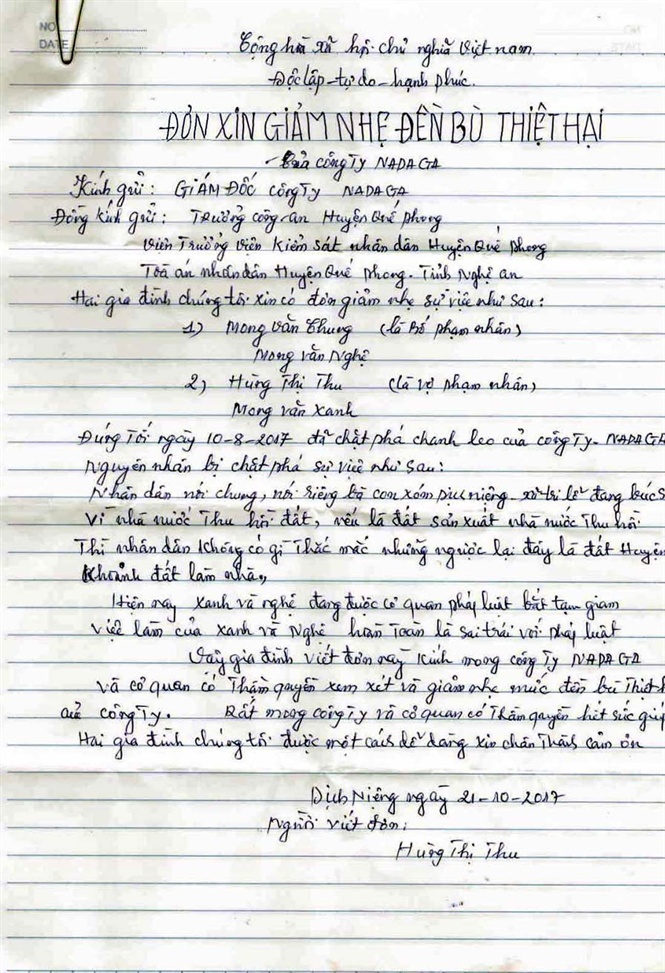 NO
DATE
NO
DATE
Cộng hoà xã hội chủ nghĩa Việt nam
Độc lập - tự do - hạnh phúc.
ĐƠN XIN GIẢM NHẸ ĐỀN BÙ THIỆT HẠI
Của công TY NADAGA
Kính gửi: GIÁM ĐỐC công Ty NADAGA
Đồng kính gửi: Trưởng công-an Huyện Quế phong
Viên Trưởng viện kiểm sát nhân dân Huyện Quế phong
Toà án nhân dân Huyện Quế phong. Tỉnh Nghệ an
Hai gia đình chúng tôi xin có đơn giảm nhẹ sự việc như sau:
1) Mong văn Chung (là Bố phạm nhân)
Mong văn Nghệ
2) Hùng Thị Thu (là vợ phạm nhân)
Mong văn xanh
Đúng Tối ngày 10-8-2017 đã chặt phá chanh leo của công Ty-NADAGA
Nguyên nhân bị chặt phá sự việc như sau:
Nhân dân nói chung, nói riêng bà con xóm - xã tri lễ đang bức
Vì nhà nước Thu hồi đất, nếu là đất sản xuất nhà nước Thu hồi
Thì nhân dân không có gì Thắc mắc nhưng ngược lại đây là đất Huyện
khoảnh đất làm nhà,,
Hiện nay xanh và nghệ đang được cơ quan pháp luật bắt tạm giam
việc làm của xanh và Nghệ hoàn Toàn là sai trái với pháp luật
Vậy gia đình viết đơn này kính mong công Ty NADAGA
và cơ quan có Thẩm quyền xem xét và giảm nhẹ mức đền bù Thiệt
của công Ty. Rất mong công Ty và cơ quan có Thẩm quyền hết sức giúp
Hai gia đình chúng tôi được một cách dễ dàng xin chân Thành cảm ơn
Dịch Niệng ngày 21-10-2017
Người viết đơn:
Hùng Thị Thu